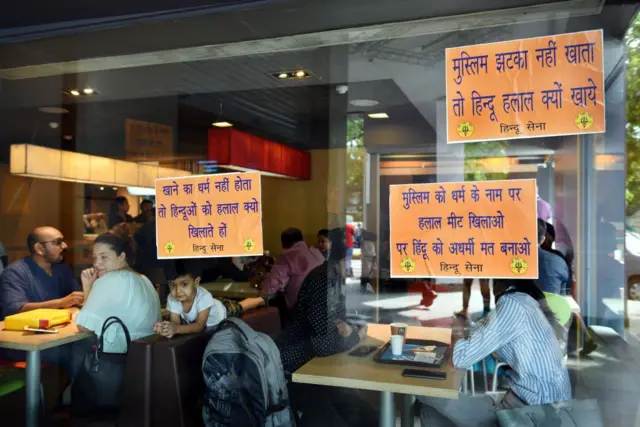 मुस्लिम झटका नहीं खाता
तो हिन्दू हलाल क्यों खाये
हिन्दू सेना
खाने का धर्म नहीं होता
तो हिन्दूओं को हलाल क्यो
खिलाते हों
हिन्दू सेना
मुस्लिम को धर्म के नाम पर
हलाल मीट खिलाओ
पर हिंदू को अधर्मी मत बनाओ
हिन्दू सेना